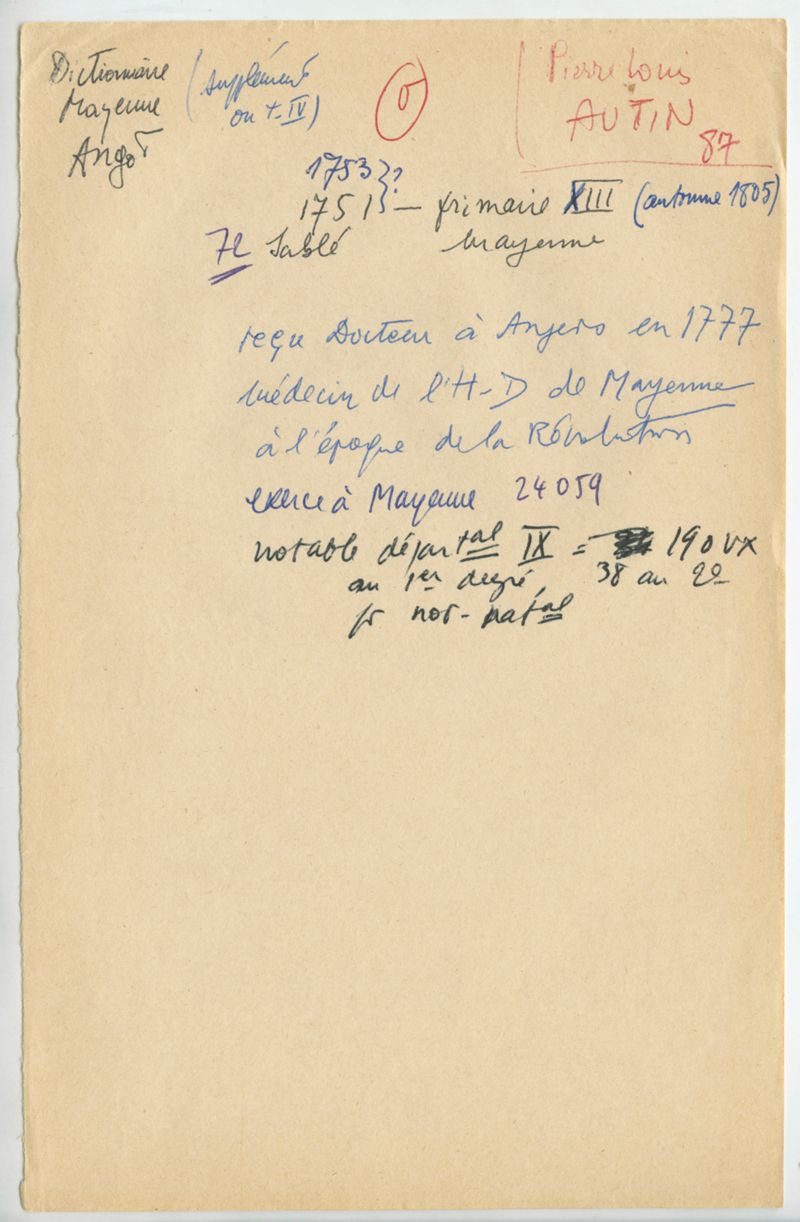 Dictionnaire
Mayenne
Angot
(supplément
ou t. IV)
0
Pierre Louis
AUTIN
87
1753 }?
1751 } — frimaire XIII (automne 1805)
72 Sablé Mayenne
reçu Docteur à Angers en 1777
Médecin de l'H-D de Mayenne
à l'époque de la Révolution
exerce à Mayenne 24059
notable départal IX = 190 vx
au 1er degré, 38 au 2o
fr not-natal